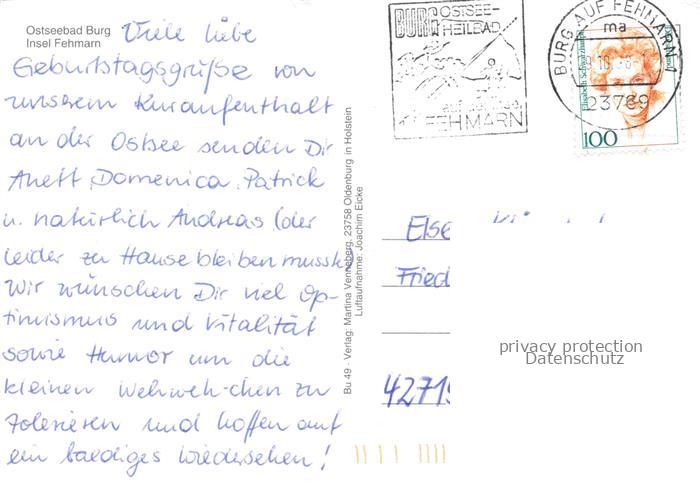 Ostseebad Burg
Insel Fehmarn
Viele liebe
Geburtstagsgrüße von
unserem Kuraufenthalt
an der Ostsee senden Dir
Anett, Domenica, Patrick
u. natürlich Andreas (der
leider zu Hause bleiben musste)
Wir wünschen Dir viel Op-
timismus und Vitalität
sowie Humor um die
kleinen Wehweh-chen zu
tolerieren und hoffen auf
ein baldiges Wiedersehen!
Bu 49 - Verlag: Martina Venneberg, 23758 Oldenburg in Holstein
Luftaufnahme: Joachim Eicke
BURG OSTSEE-
HEILBAD
auf
FEHMARN
BURG AUF FEHMARN 1
ma
23769
Elisabeth Schwarzhaupt
100
Else
Fried
42719
privacy protection
Datenschutz